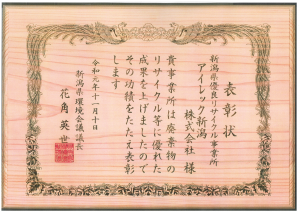 表彰状
新潟県優良リサイクル事業所
アイレック新潟
株式会社 様
貴事業所は廃棄物の
リサイクル等に優れた
成果を上げましたので
その功績をたたえ表彰
します
令和元年十一月十日
新潟県環境会議議長
花角英世